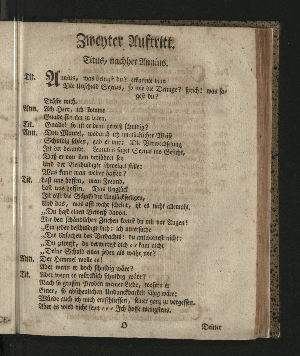 Zweyter Auftritt.
Titus, nachher Annius.
Tit. Annius, was bringst du? erkannte man
Die Unschuld Sextus, so wie die Deinige? sprich! was sa-
gest du?
Tröste mich.
Ann. Ach Herr, ich komme
Gnade für ihn zu bitten.
Tit. Gnade! so ist er denn gewiß schuldig?
Ann. Den Mantel, wodurch ich
Schuldig schien, gab er mir. Die Verwechslung
Ist dir bekannt. Sextus ins Gesicht,
Daß er von ihm verführet sey
und der Beschuldigte schweiget stille:
Was kann man weiter hoffen?
Tit. Laß uns hoffen, mein Freund,
Laß uns hoffen. Das Unglück
Ist oft die Schuld des Unglückseligen,
Und das, was oft wahr scheint, ist es nicht allemahl.
„Du hast einen Beweis davon.
Mit den schändlichen Zeichen kömst du mir vor Augen!
„Ein jeder beschuldigt dich: ich untersuche
„Die Ursachen des Verdachts: du antwortest nicht:
„Du zitterst, du verwirrest dich
„Deine Schuld einen jeden als wahr?
Ann. Der Himmel wolle es!
Aber wenn er doch schuldig wäre?
Tit. Aber wenn er wirklich schuldig wäre?
Nach so grossen Proben meiner Liebe, wofern er
Einer so abscheulichen Undankbarkeit fähig wäre:
Würde auch ich mich entschliessen, seiner ganz zu vergessen.
Aber es wird nicht seyn Ich hoffe wenigstens.
Dritter